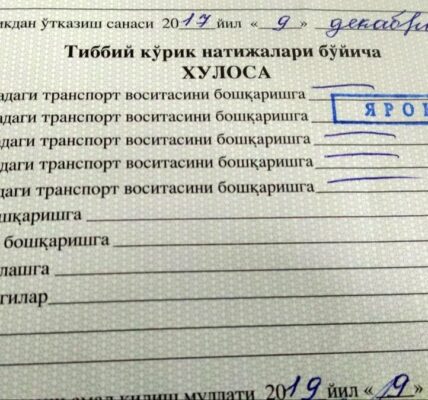 икдан ўтказиш санаси 2017 йил « 9 » декабр
Тиббий кўрик натижалари бўйича
ХУЛОСА
адаги транспорт воситасини бошқаришга
адаги транспорт воситасини бошқаришга ЯРО
адаги транспорт воситасини бошқаришга
адаги транспорт воситасини бошқаришга
даги транспорт воситасини бошқаришга
шқаришга
бошқаришга
лашга
гилар
амал қилиш муддати 2019 йил « 19 »